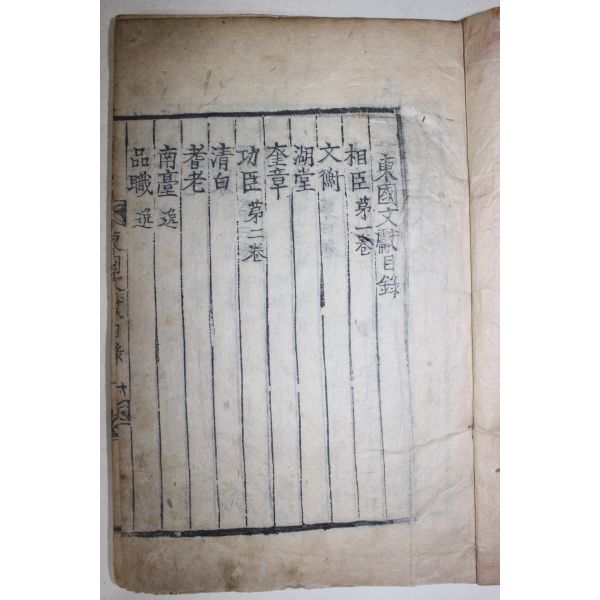 東國文獻目錄
相臣 第一卷
文衡
湖堂
奎章
功臣 第二卷
清白
耆老
南臺 逸
品職 逸
東國文獻目錄